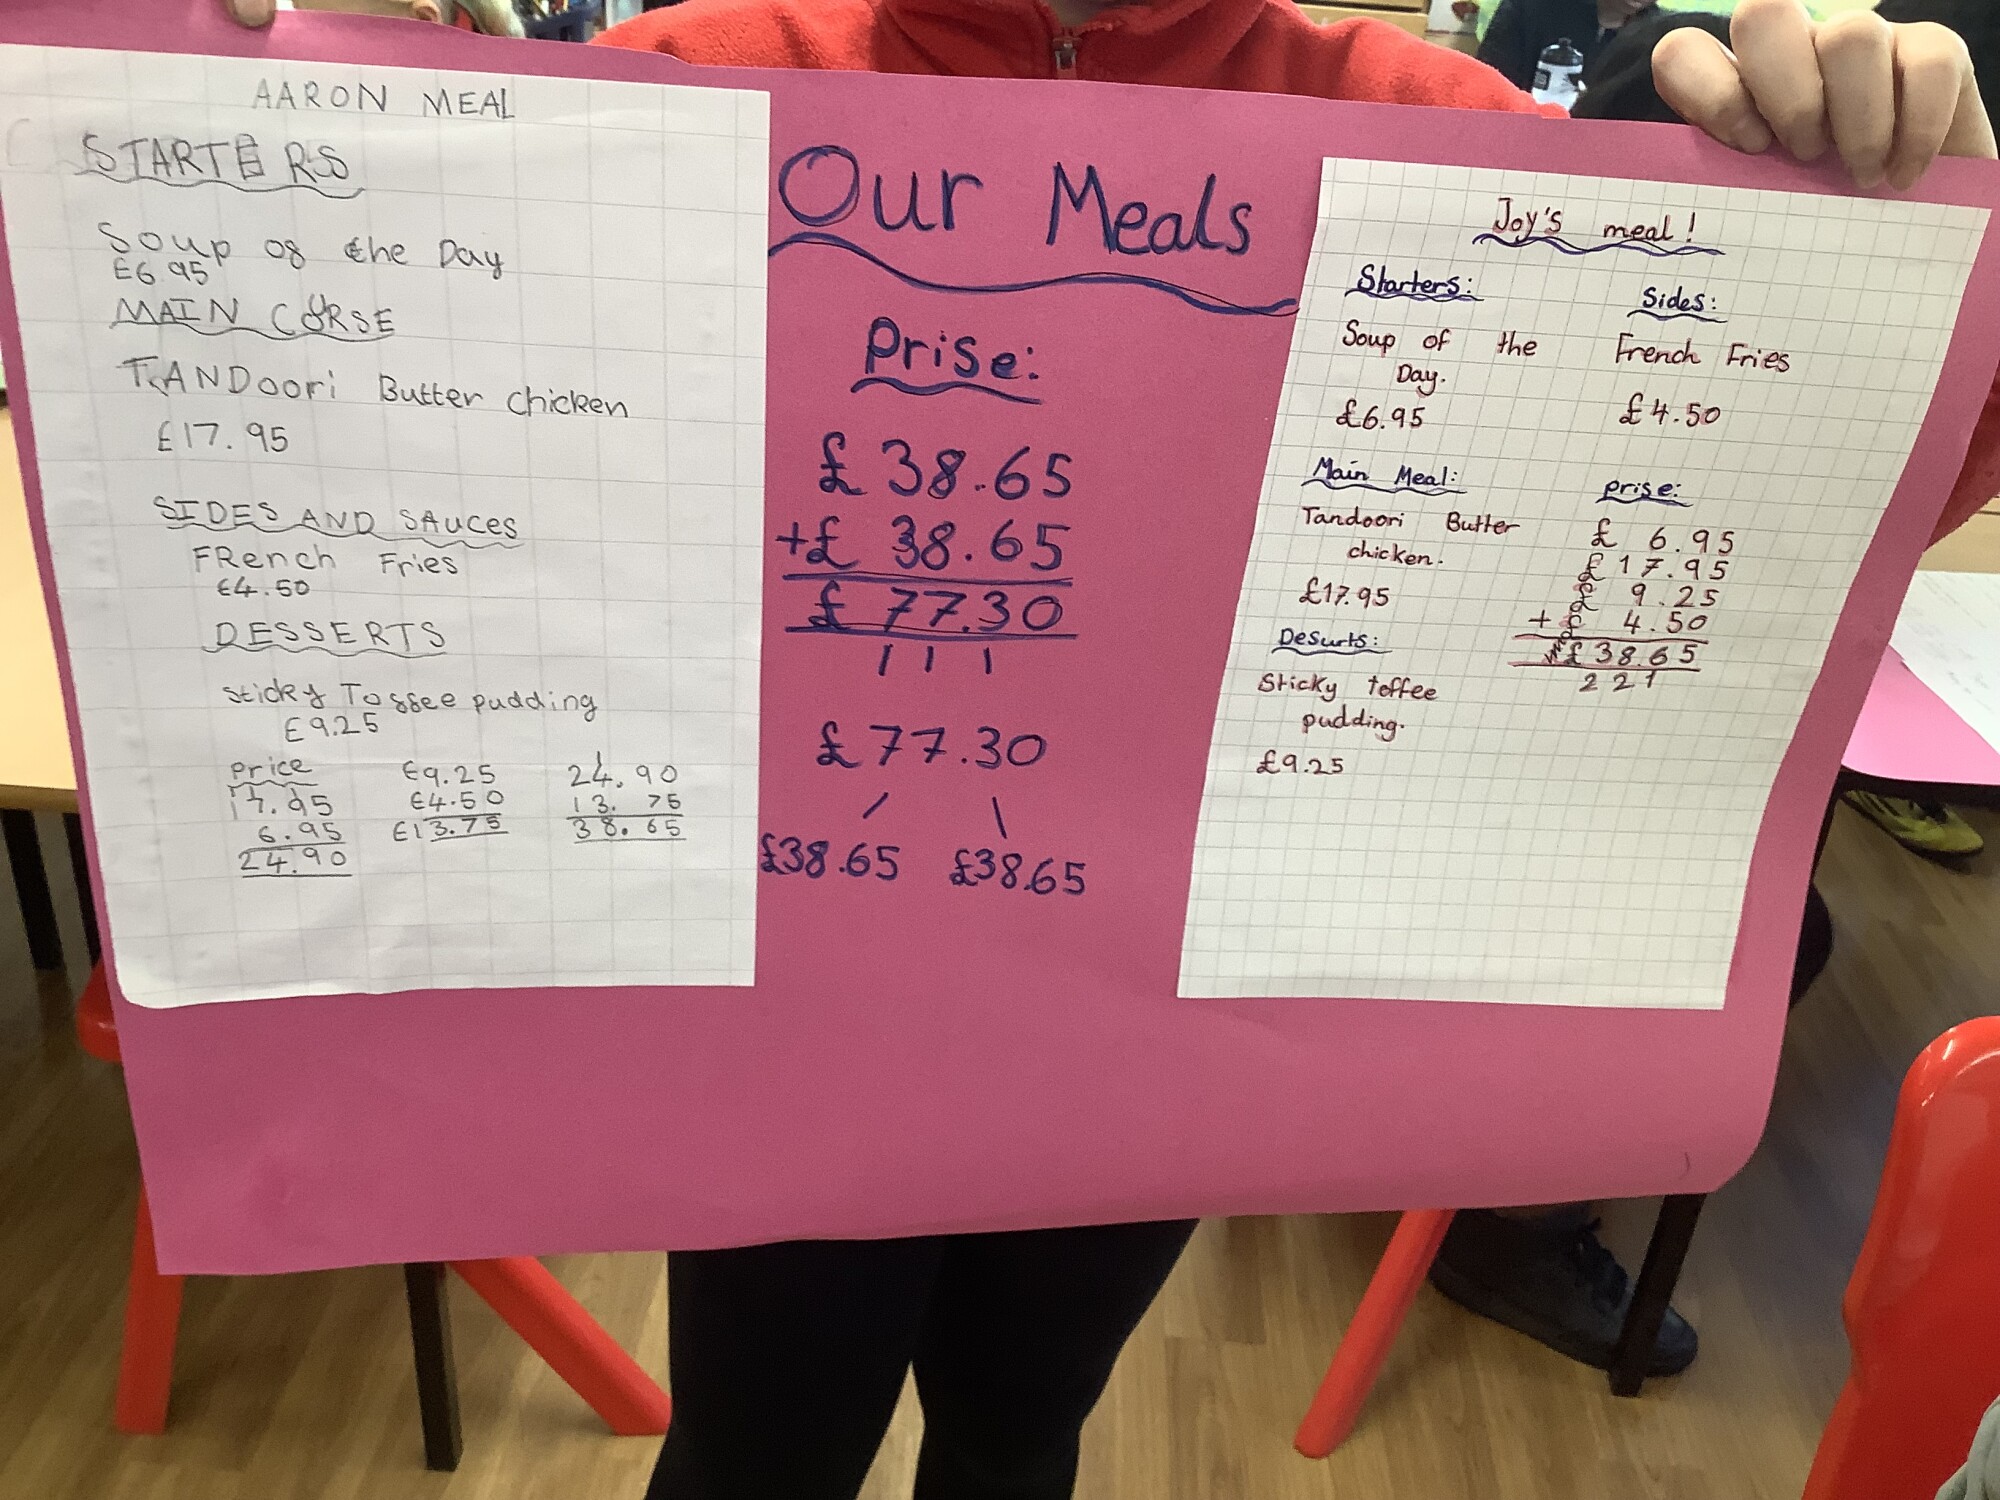 AARON MEAL
STARTERS
Soup of the Day
£6.95
MAIN COURSE
TANDoori Butter chicken
£17.95
SIDES AND SAuces
FRench Fries
£4.50
DESSERTS
sticky Toffee pudding
£9.25
Price
17.95
6.95
24.90
£9.25
£4.50
£13.75
24.90
13.75
38.65
Our Meals
Prise:
£ 38.65
+£ 38.65
£ 77.30
1 1 1
£77.30
£38.65 £38.65
Joy's meal!
Starters:
Soup of the
Day.
£6.95
Main Meal:
Tandoori Butter
chicken.
£17.95
Desurts:
Sticky toffee
pudding.
£9.25
Sides:
French Fries
£4.50
prise:
£ 6.95
£17.95
£ 9.25
+ £ 4.50
£38.65
2 2 1